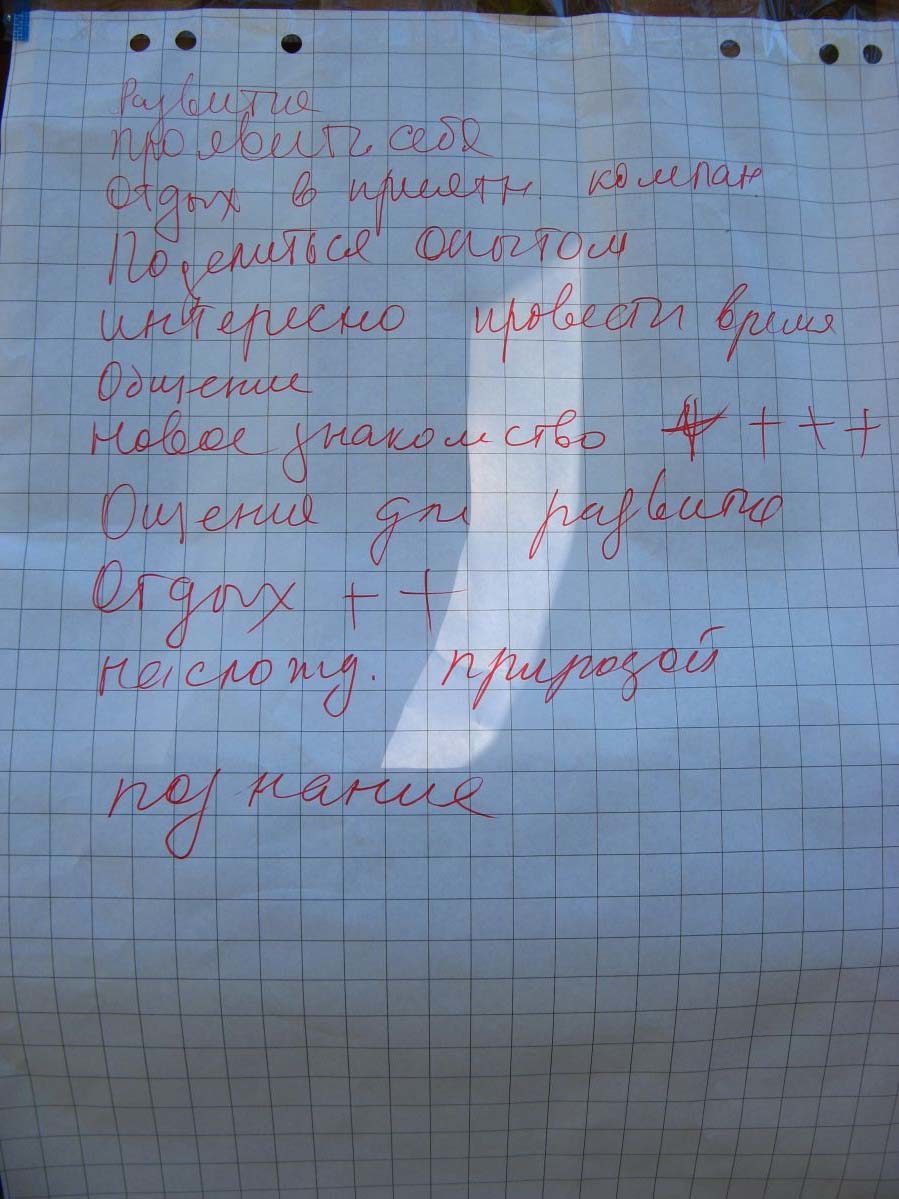 Развитие
проявить себя
Отдых в приятн. компан.
Поделиться опытом
интересно провести время
Общение
новое знакомство + + + +
Ощения для развития
Отдых + +
насложд. природой
познание